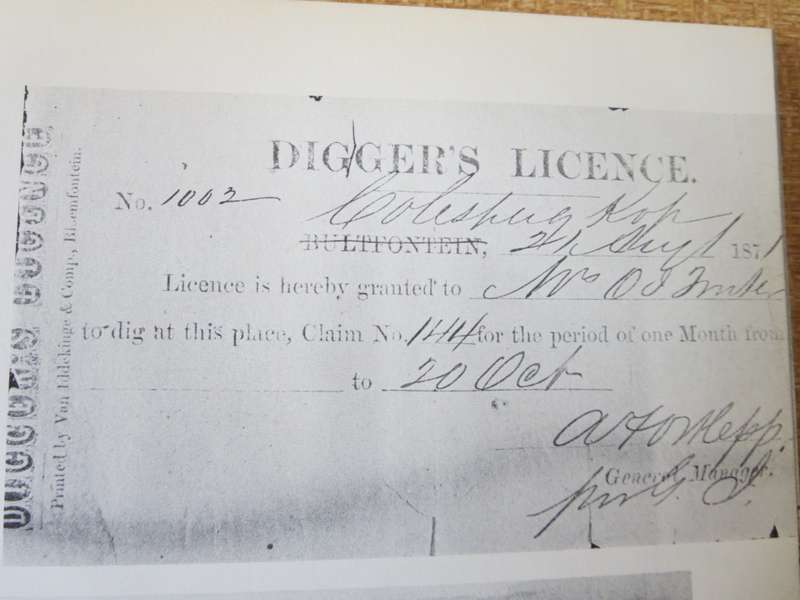 DIGGER'S LICENCE.
No. 1002 Colesberg Kop
BULTFONTEIN, 21 Sept 1871
Licence is hereby granted to Mr
to dig at this place, Claim No. 144 for the period of one Month from
to 20 Oct
General Manager.
Printed by Van Iddekinge & Comp., Bloemfontein.